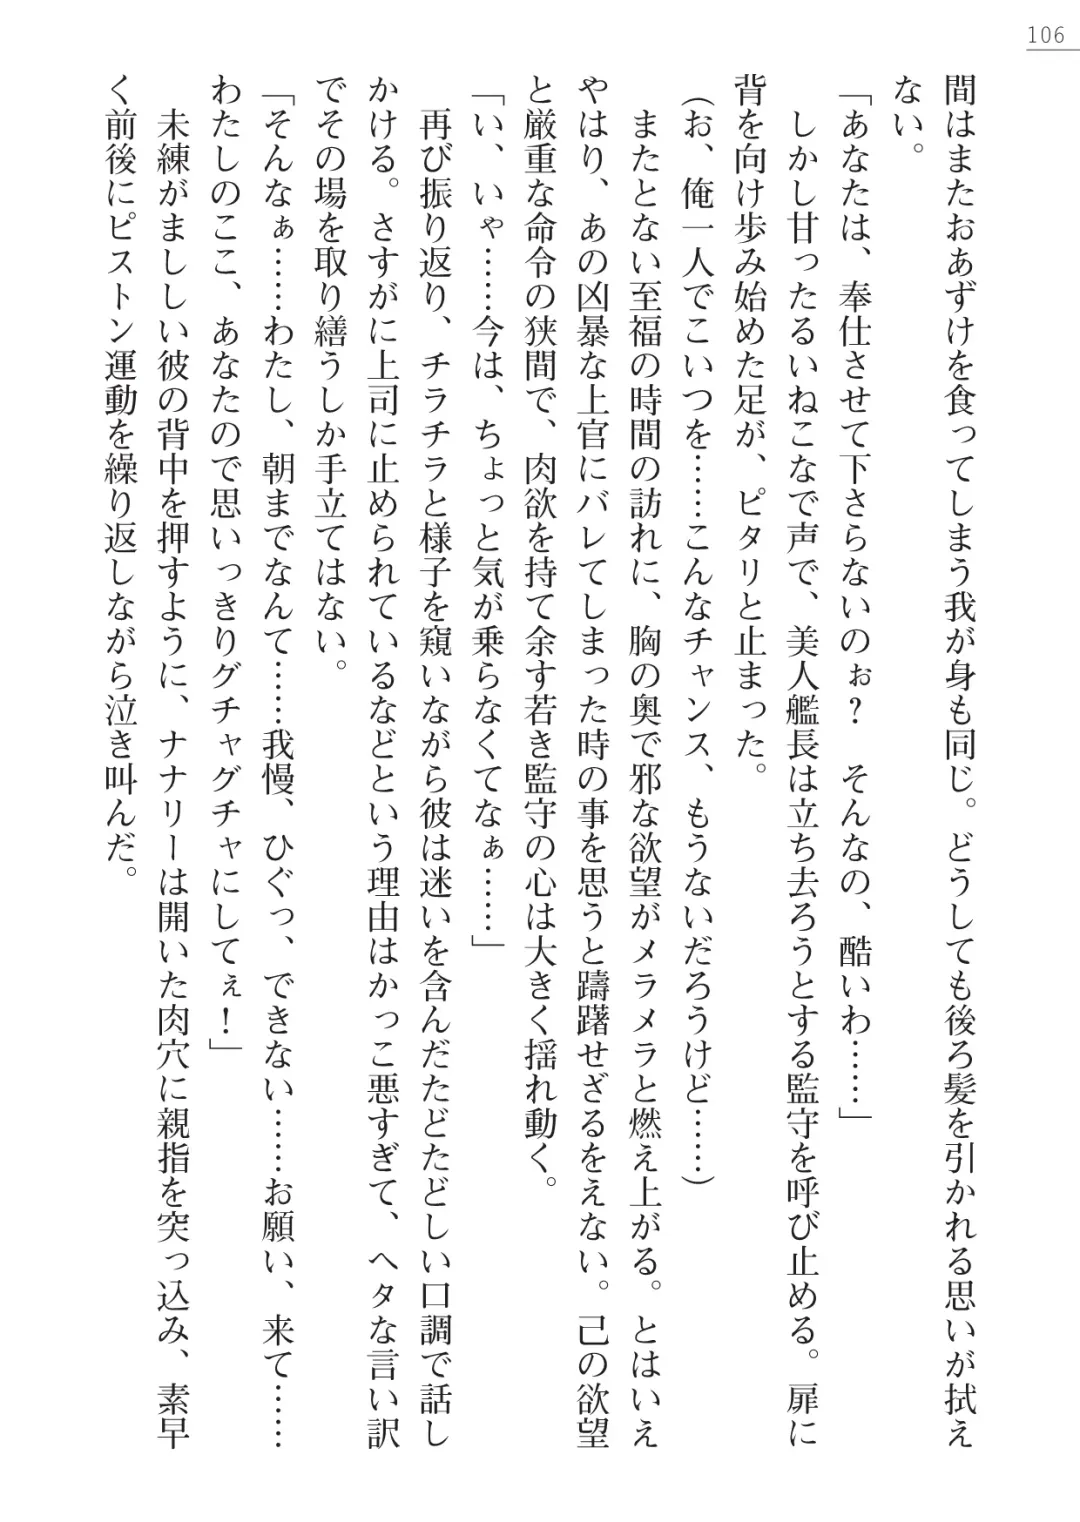 106
間はまたおあずけを食ってしまう我が身も同じ。どうしても後ろ髪を引かれる思いが拭え
ない。
「あなたは、奉仕させて下さらないのぉ？　そんなの、酷いわ……」
　しかし甘ったるいねこなで声で、美人艦長は立ち去ろうとする監守を呼び止める。扉に
背を向け歩み始めた足が、ピタリと止まった。
（お、俺一人でこいつを……こんなチャンス、もうないだろうけど……）
　またとない至福の時間の訪れに、胸の奥で邪な欲望がメラメラと燃え上がる。とはいえ
やはり、あの凶暴な上官にバレてしまった時の事を思うと躊躇せざるをえない。己の欲望
と厳重な命令の狭間で、肉欲を持て余す若き監守の心は大きく揺れ動く。
「い、いゃ……今は、ちょっと気が乗らなくてなぁ……」
　再び振り返り、チラチラと様子を窺いながら彼は迷いを含んだたどたどしい口調で話し
かける。さすがに上司に止められているなどという理由はかっこ悪すぎて、ヘタな言い訳
でその場を取り繕うしか手立てはない。
「そんなぁ……わたし、朝までなんて……我慢、ひぐっ、できない……お願い、来て……
わたしのここ、あなたので思いっきりグチャグチャにしてぇ！」
　未練がましい彼の背中を押すように、ナナリーは開いた肉穴に親指を突っ込み、素早
く前後にピストン運動を繰り返しながら泣き叫んだ。